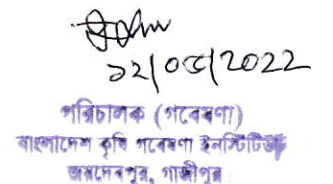 ১২/০৫/2022
পরিচালক (গবেষণা)
বাংলাদেশ কৃষি গবেষণা ইনস্টিটিউট
জয়দেবপুর, গাজীপুর